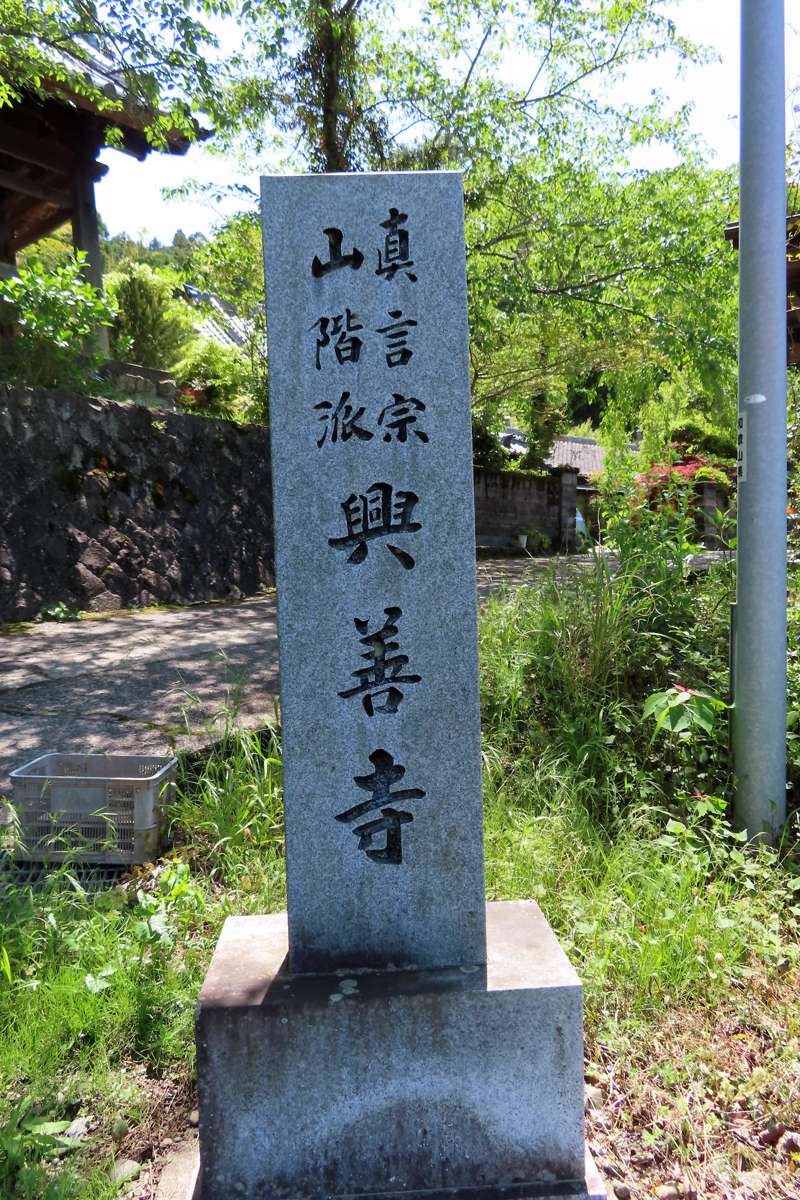 真言宗
山階派
興善寺